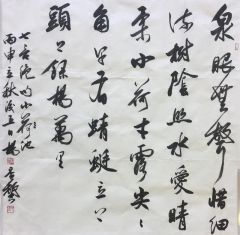 泉眼無聲惜細
流樹陰照水愛晴
柔小荷才露尖々
角早有蜻蜓立上
頭 錄楊萬里
七言絕句小荷池
丙申立秋後五日楊